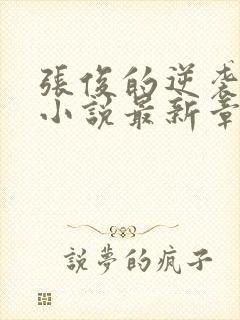 張俊的逆袭
小說最新章
說夢的疯子